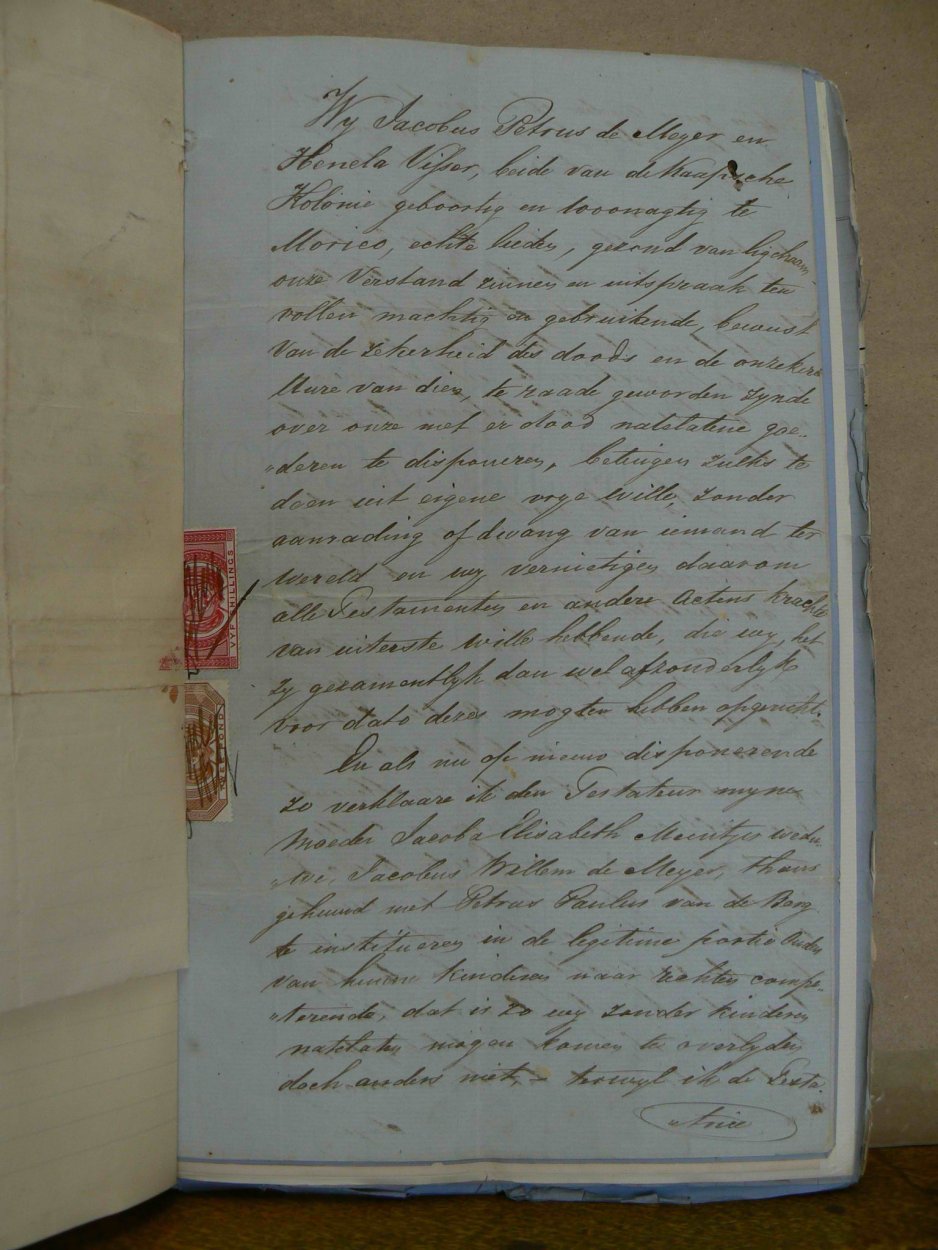 Wy Jacobus Petrus de Meyer en
Henela Visser, beide van de Kaapsche
Kolonie geboortig en woonagtig te
Marico, echte lieden, gezond van ligchaam
onze Verstand zinnen en uitspraak ten
vollen machtig en gebruikende, bewust
van de zekerheid des doods en de onzekere
Uure van dien, te raade geworden zynde
over onze met er dood natelatene goe-
"deren te disponeren, betuigen zulks te
doen uit eigene vrye wille, zonder
aanrading of dwang van iemand ter
wereld en wy vernietigen daarom
alle Testamenten en andere Actens kracht
van uiterste wille hebbende, die wy, het
zy gezamentlyk dan wel afzonderlyk
voor dato dezes mogten hebben opgericht.
En als nu op nieuw disponerende
zo verklaare ik den Testateur myne
Moeder Jacoba Elisabeth Meintjes wedu-
"we, Jacobus Willem de Meyer, thans
gehuwd met Petrus Paulus van de Berg
te institueren in de legetime portie Ouders
van hunne kinderen naar rechten compe-
"terende, dat is zo wy zonder kinderen
natelaten mogen komen te overlyden
doch anders niet, – terwyl ik de Testa-
"trice
VYF SHILLINGS
EEN POND